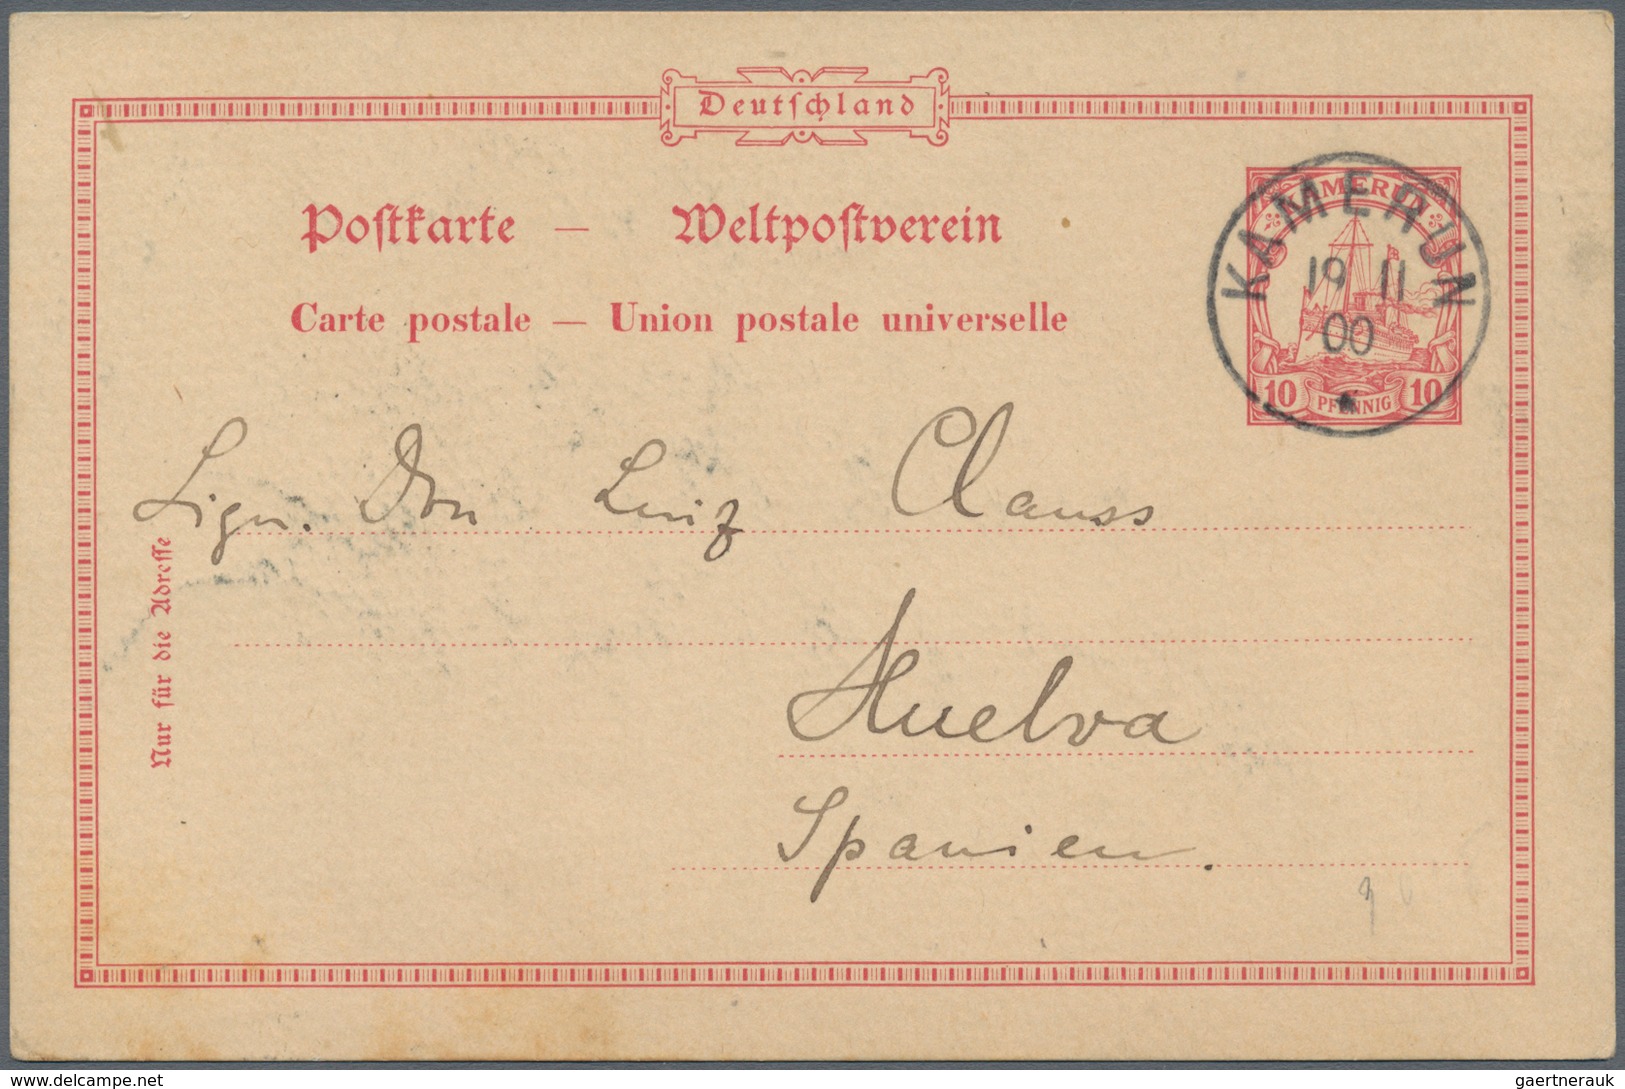 Deutschland
Postkarte — Weltpostverein
Carte postale — Union postale universelle
KAMERUN
10 PFENNIG 10
KAMERUN
19 11
00
*
Sign. Don Luiz Clauss
Nur für die Adresse
Huelva
Spanien.
www.delcampe.net
gaertnerauk